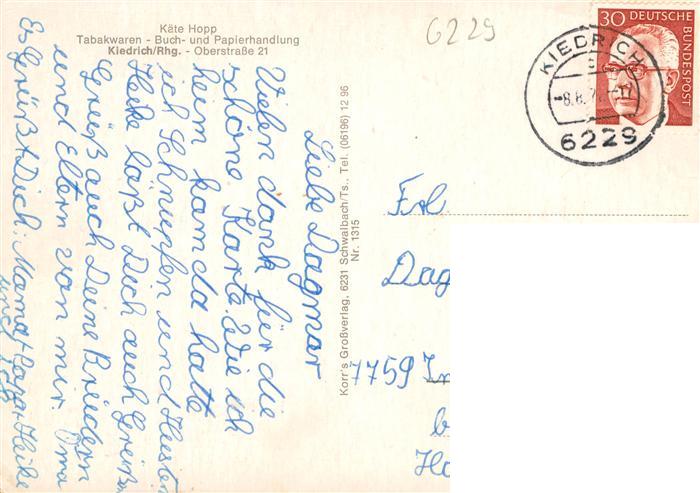 Käte Hopp
Tabakwaren - Buch- und Papierhandlung
Kiedrich/Rhg. - Oberstraße 21
6229
30 DEUTSCHE
BUNDESPOST
KIEDRICH
-8.6.7
6229
Liebe Dagmar
Vielen dank für die
schöne Karte. Wie ich
heim kam da hatte
ich Schnupfen und Husten
Heike läßt Dich auch Greißen
Greiß auch Deine Brüdern
und Eltern von mir. Oma
Es Grüßt Dich: Mama + Papa + Heike
und
Korr's Großverlag, 6231 Schwalbach/Ts., Tel. (06196) 12 96
Nr. 1315
Frl
Dag
7759 Im
b
Ha